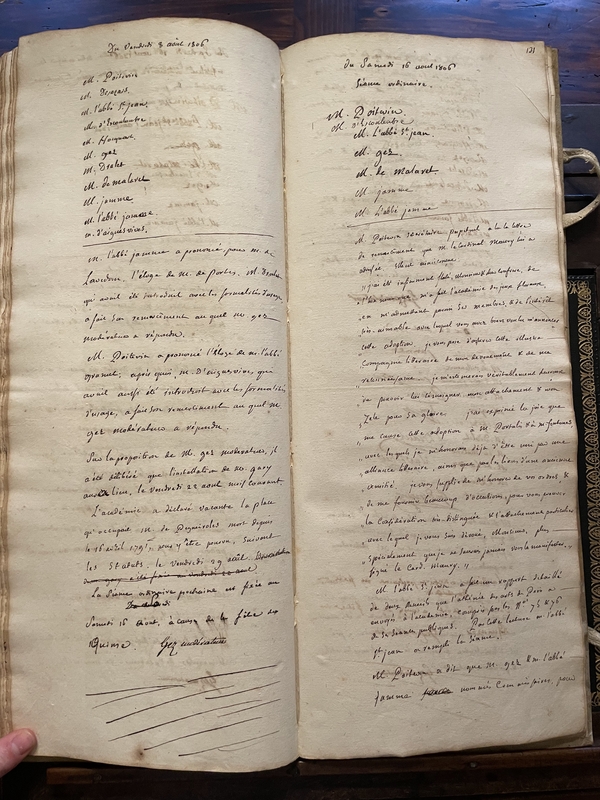 Du Vendredi 8 août 1806
M. Poitevin
M. Desazars
M. l'abbé St jean
M. d'Escouloubre
M. gez
M. Dralet
M. de malaret
M. jamme
M. l'abbé jamme
m. d'aiguesvives.
M. l'abbé jamme a prononcé, pour M. de
l'éloge de M. de Portes. M.
qui avait été introduit avec les formalités d'usage,
a fait son remerciment au quel M. gez
modérateur a répondu.
M. Poitevin a prononcé l'éloge de M. l'abbé
après quoi, M. D'aiguesvives, qui
avait aussi été introduit avec les formalités
d'usage, a fait son remerciment au quel M.
gez modérateur a répondu.
Sur la proposition de M. gez modérateur, il
a été délibéré que l'installation de M.
aura lieu, le vendredi 22 août courant.
L'académie a déclaré vacante la place
qu'occupait M. de mort depuis
le 16 avril pour y être pourvu, suivant
les Statuts, le Vendredi 29 août.
La Séance ordinaire prochaine est fixée au
Samedi 16 août, à cause de la fête du
Quinze. Gez modérateur
131
Du Samedi 16 aout 1806
Séance ordinaire.
M. Poitevin
M. d'Escouloubre
M. L'abbé St jean
M. gez.
M. de malaret
M. jamme
M. L'abbé jamme
M. Poitevin Secrétaire perpétuel a lu la lettre
de remerciment que M. le Cardinal Maury lui a
"j'ai été infiniment flatté, Monsieur
l'honneur que m'a fait l'académie des jeux floraux,
en m'admettant parmi ses membres, & de l'intérêt
très-aimable avec lequel vous avez bien voulu m'annoncer
cette adoption. je vous prie d'assurer cette illustre
Compagnie littéraire de mon dévouement & de ma
reconnaissance. je m'estimerai véritablement heureux
de pouvoir lui témoigner mon attachement & mon
Zèle pour Sa gloire. j'ai exprimé la joie que
me cause cette adoption à M. Portalis & à M.
avec lesquels je m'honorais déjà d'être uni par une
alliance littéraire, ainsi que par les liens d'une ancienne
amitié. je vous supplie de m'honorer de vos ordres &
de me fournir beaucoup d'occasions pour vous prouver
la Considération très-distinguée & l'attachement particulier
avec lequel je vous suis dévoué, Monsieur, plus
que je ne saurais jamais vous le manifester,
signé le Card. Maury. "
M. l'abbé St jean a fait un rapport détaillé
de deux que l'athénée des arts de Paris a
envoyé à l'académie, cotés par les Nos 75 & 76
de ses Séances publiques. Par cette lecture M. l'abbé
St jean a rempli la Séance.
M Poitevin a dit que M. gez & M. l'abbé
jamme nommés Commissaires, pour